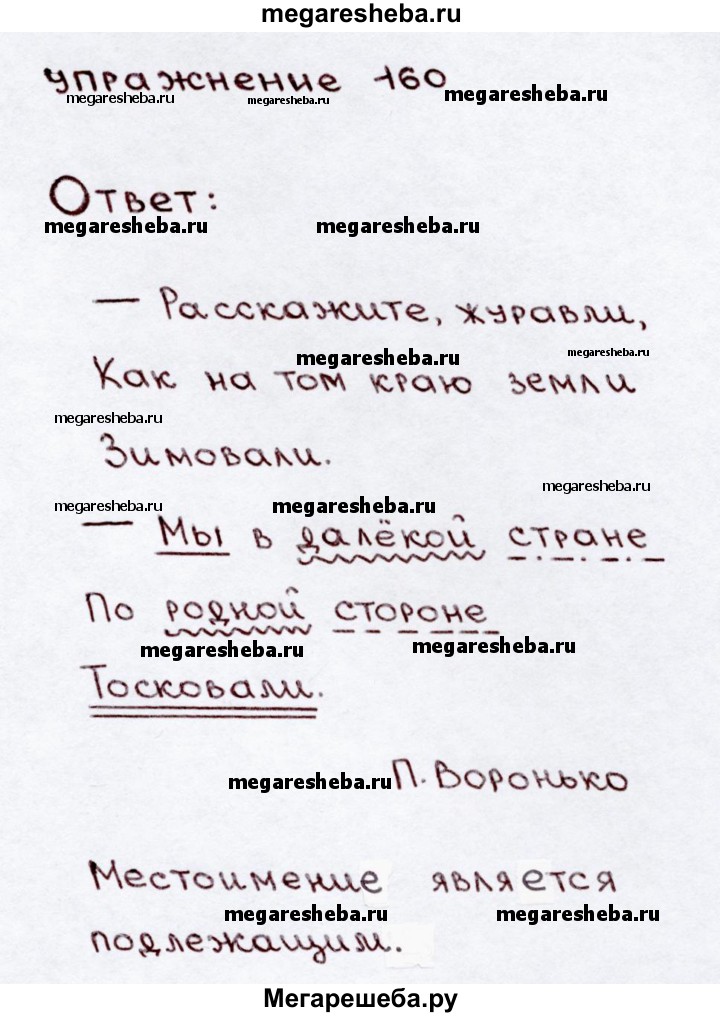 megaresheba.ru
упражнение 160
megaresheba.ru megaresheba.ru megaresheba.ru
Ответ:
megaresheba.ru megaresheba.ru
— Расскажите, журавли,
megaresheba.ru megaresheba.ru
Как на том краю земли
megaresheba.ru
Зимовали.
megaresheba.ru
megaresheba.ru megaresheba.ru
— Мы в далёкой стране
По родной стороне
megaresheba.ru megaresheba.ru
Тосковали.
megaresheba.ru П. Воронько
Местоимение является
megaresheba.ru megaresheba.ru
подлежащим.
Мегарешеба.ру